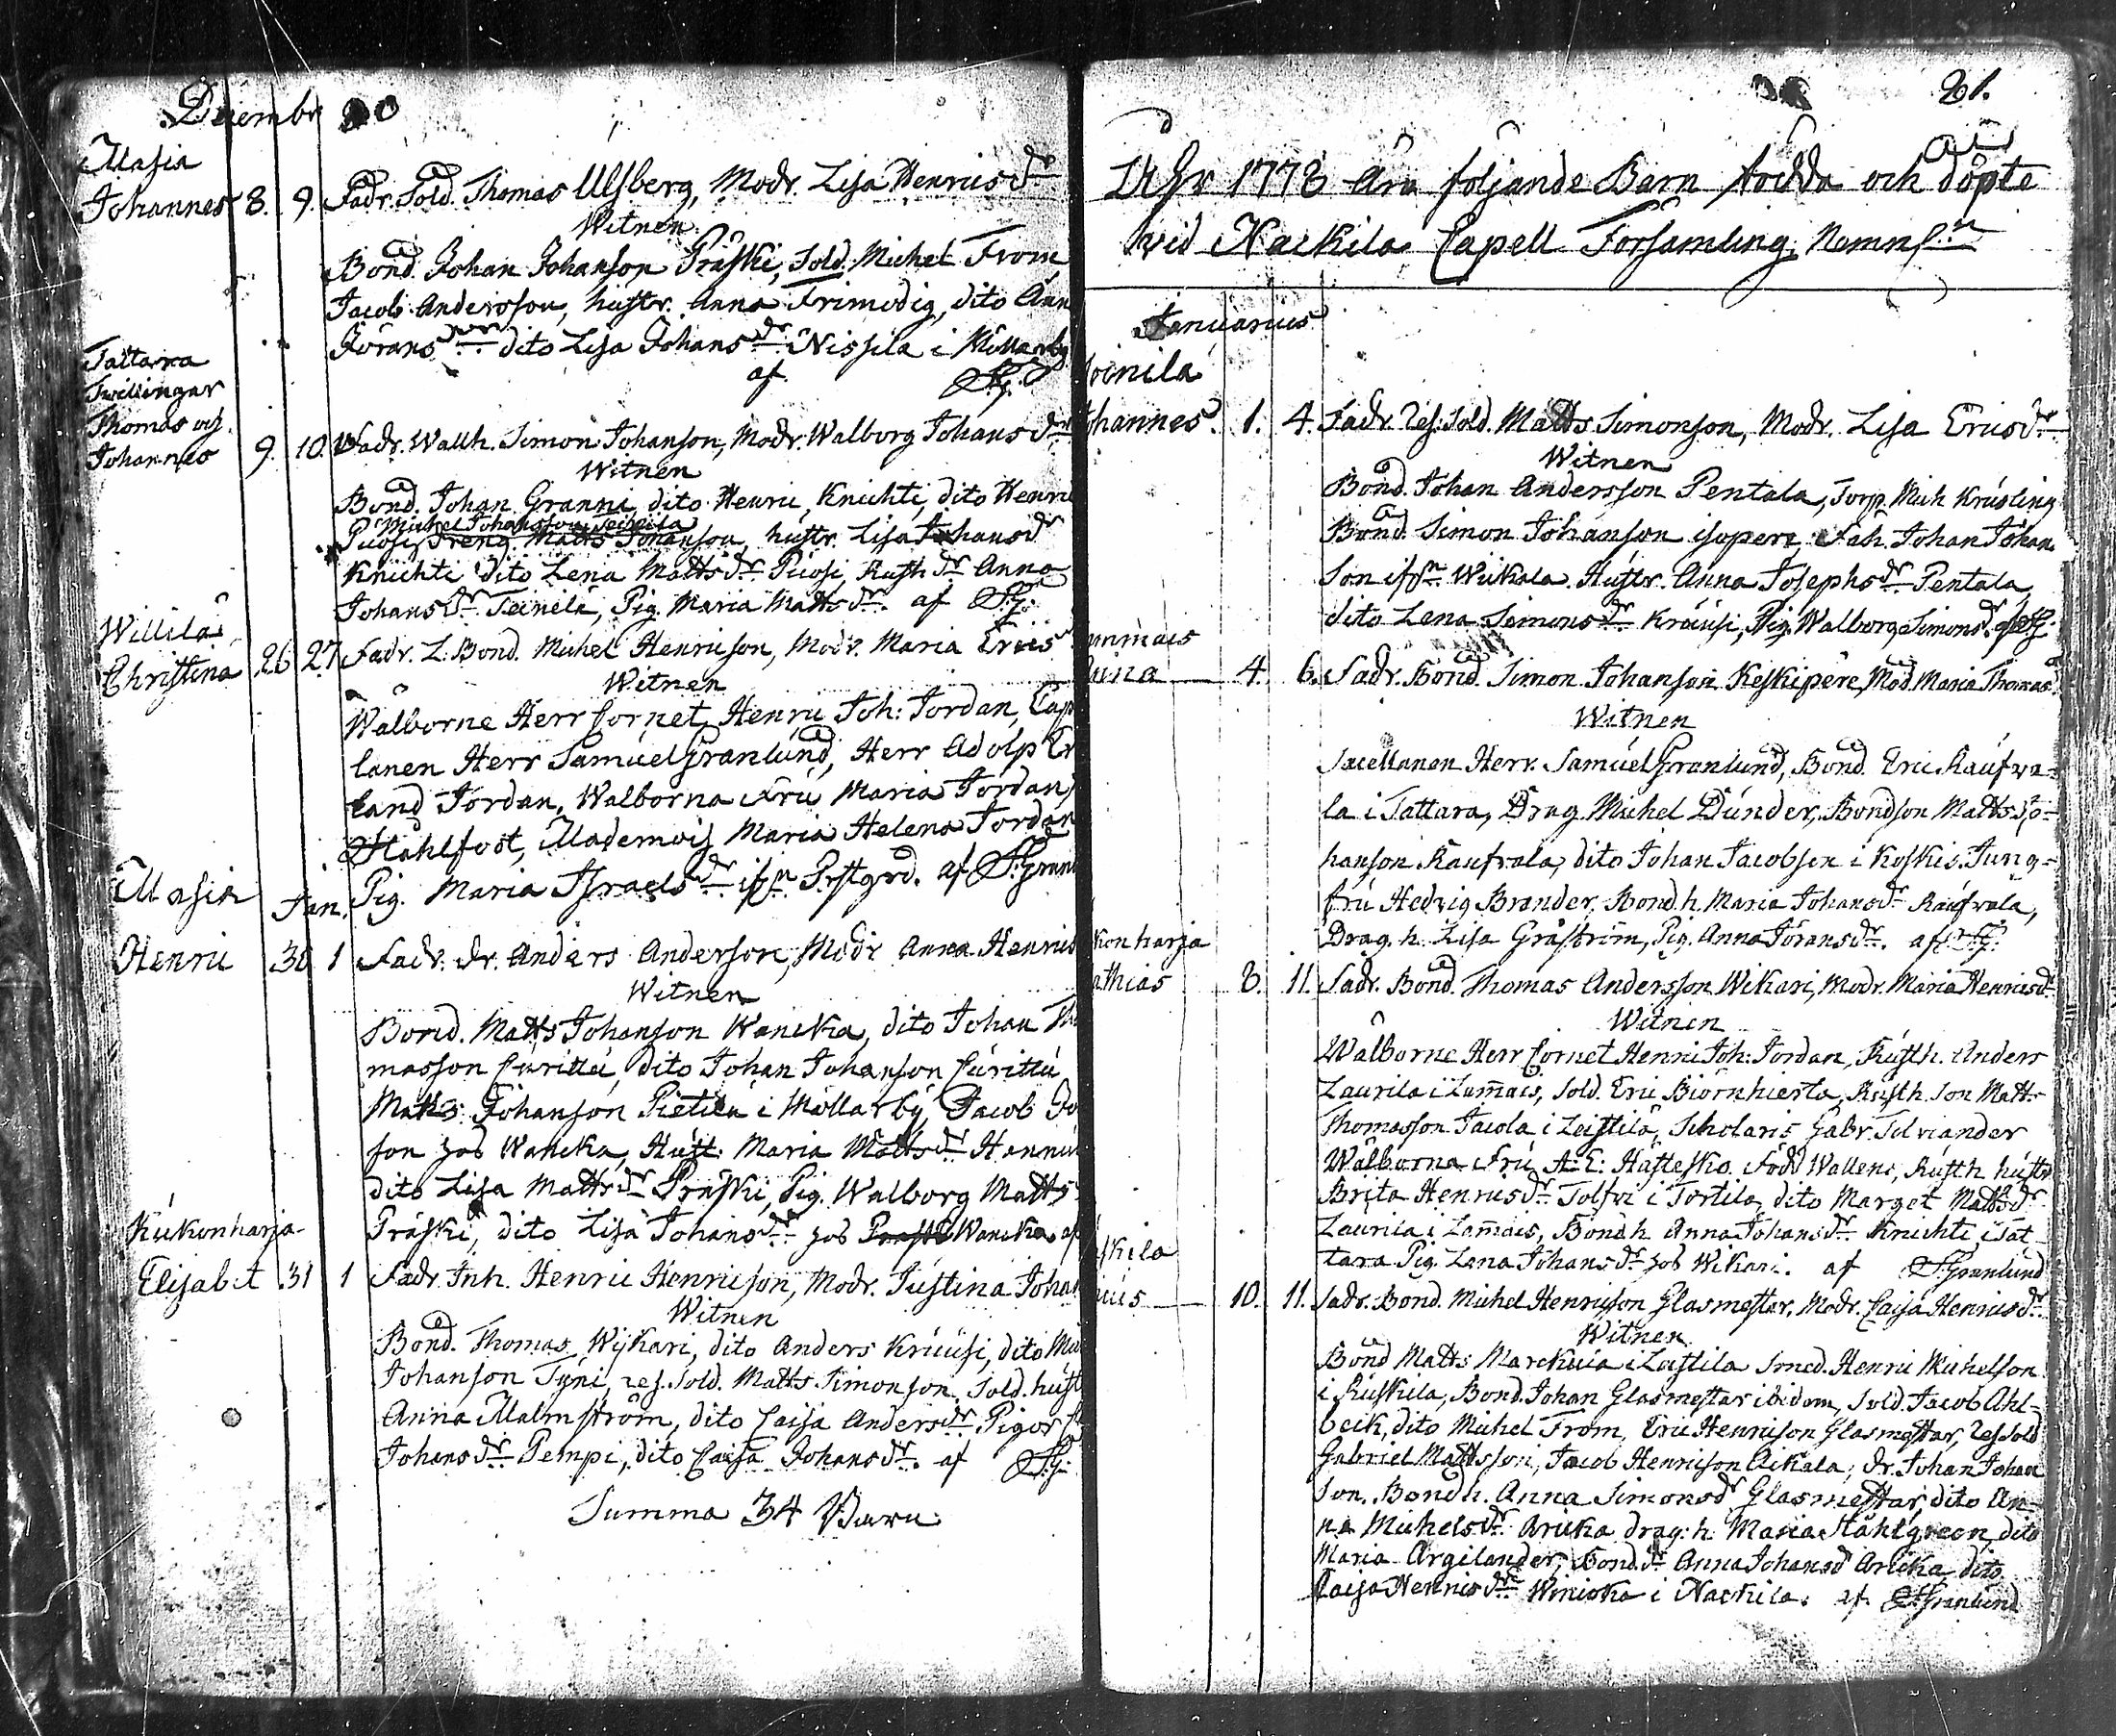 Decembr 20
Masia
Johannes 8. 9. Fadr. Sold. Thomas Ulsberg, Modr. Lisa Henricsdr
Witnen
Bond. Johan Johanson Präski, Sold. Michel From
Jacob Andersson, hustr. Anna Frimodig, dito Ann
Göransdr dito Lisa Johansdr Nissila i Möllarby
af SG.
Tattara
Twillingar
Thomas och
Johannes 9. 10. Fadr. Wallh. Simon Johanson, Modr. Walborg Johansdr
Witnen
Bond. Johan Granni, dito Henric Knichti, dito Henric
Michel Johansson Seinila
Piåsi, Dreng. Matts Johanson, hustr. Lisa Johansdr
Knichti dito Lena Mattsdr Piåsi, Rusthdr Anna
Johansdr Teinilä, Pig. Maria Mattsdr. af SG.
Willilä
Christina 26 27 Fadr. L: Bond. Michel Henricson, Modr. Maria Erics
Witnen
Wälborne Herr Cornet Henric Joh: Jordan, Cap
lanen Herr Samuel Granlund, Herr Adolp Er
land Jordan, Walborna Fru Maria Jordan,
Stahlfoot, Mademois Maria Helena Jordan
Pig. Maria Israelsdr ifrn Prstgrd. af SGran
Masia Jan.
Henric 30 1 Fadr. dr. Anders Anderson, Modr Anna Henrics
Witnen
Bond. Matts Johanson Wancka, dito Johan Tho
masson Curittu, dito Johan Johanson Curittu,
Matts Johanson Pietila i Möllarby, Jacob Jo
son hos Wancka, Hust. Maria Mattsdr Hannu
dito Lisa Mattsdr Präski, Pig. Walborg Matts
Präski, dito Lisa Johansdr hos Wancka af
Kukonharja
Elisabet 31 1 Fadr. Inh. Henric Henricson, Modr. Justina Johan
Witnen
Bond. Thomas Wijkari, dito Anders Kruusi, dito
Johanson Tyni, res. Sold. Matts Simonson, Sold. hust
Anna Malmström, dito Caisa Andersdr Pigor
Johansdr Pempi, dito Caisa Johansdr. af SG.
Summa 34 Barn
21.
Åhr 1778 äro följande Barn födda och döpte
wid Nackila Capell Församling. Nemnln
Januarius
oinila
ohannes. 1. 4. Fadr. Res: Sold. Matts Simonson, Modr. Lisa Ericsdr
Witnen
Bond. Johan Andersson Pentala, Torp. Mich Krusling
Bond. Simon Johanson isoperi, Fah. Johan Johan
son ifrn Wiikala. Hustr. Anna Josephsdr Pentala,
dito Lena Simonsdr Kruusi, Pig. Walborg Simonsdr. af SG.
ammais
ina 4. 6. Fadr. Bond. Simon Johanson Keskipere, Mod. Maria Thomasd
Witnen
Sacellanen Herr. Samuel Granlund, Bond. Eric Kaufva-
la i Tattara, Drag. Michel Dunder, Bondson Matts Jo-
hanson Kaufvala, dito Johan Jacobson i Koskis. Jung-
fru Hedvig Brander, Bond. h. Maria Johansdr Kaufvala,
Drag. h. Lisa Gråström, Pig. Anna Göransdr. af SG.
konharja
athias 8. 11. Fadr. Bond. Thomas Andersson Wikari, Modr. Maria Henricsdr
Witnen
Wälborne Herr Cornet Henric Joh: Jordan, Rusth. Anders
Laurila i Lamais, Sold. Eric Biörnhierta, Rusth. son Matts
Thomasson Jacola i Leistila, Scholaris Gabr. Selviander
Wälborna Fru A: E: Hästesko. Född Wallens, Rusth. hustr
Brita Henricsdr Tolfvi i Tortila, dito Marget Mattsdr
Laurila i Lamais, Bond h. Anna Johansdr Knichti i Tat
tara Pig. Lena Johansdr hos Wikari. af SGranlund
skila
icus 10. 11. Fadr. Bond. Michel Henricson Glasmestar, Modr. Caisa Henricsdr
Witnen
Bond Matts Marckula i Leistila Smed. Henric Michelson
i Ruskila, Bond. Johan Glasmestar ibidem, Sold. Jacob Ahl-
beck, dito Michel From, Eric Henricson Glasmestar, Res Sold
Gabriel Mattsson, Jacob Henricson Aikala, dr. Johan Johan
son. Bond h. Anna Simonsdr Glasmestar, dito An-
na Michelsdr Aricka drag: h. Maria Ståhlgreen, dito
Maria Argilander, Bond.dr Anna Johansdr Aricka, dito
Caisa Henricsdr Winicka i Nackila. af SGranlund